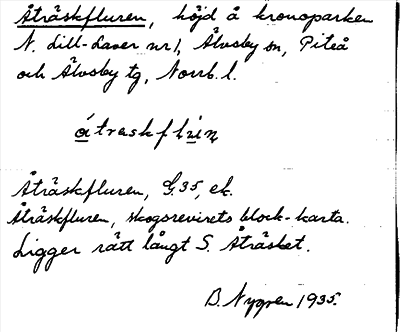 Åträskfluren, höjd å kronoparken
N. Lill-Laver nr 1, Älvsby sn, Piteå
och Älvsby tg, Norrb. l.
åtraskfluin
Åträskfluren, G.35, ek.
Åträskfluren, skogsrevirets block-karta.
Ligger rätt långt S. Åträsket.
B. Nygren 1935.